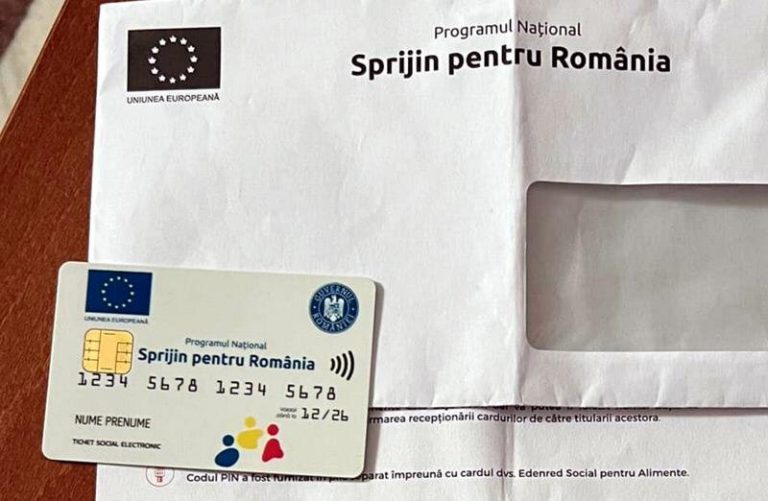 Programul Național
Sprijin pentru România
UNIUNEA EUROPEANĂ
UNIUNEA EUROPEANĂ
GUVERNUL ROMÂNIEI
Programul Național
Sprijin pentru România
1234 5678 1234 5678
12/26
NUME PRENUME
TICHET SOCIAL ELECTRONIC
rmarea recepționării cardurilor de către titularii acestora.
Codul PIN a fost furnizat în parat împreună cu cardul dvs. Edenred Social pentru Alimente.